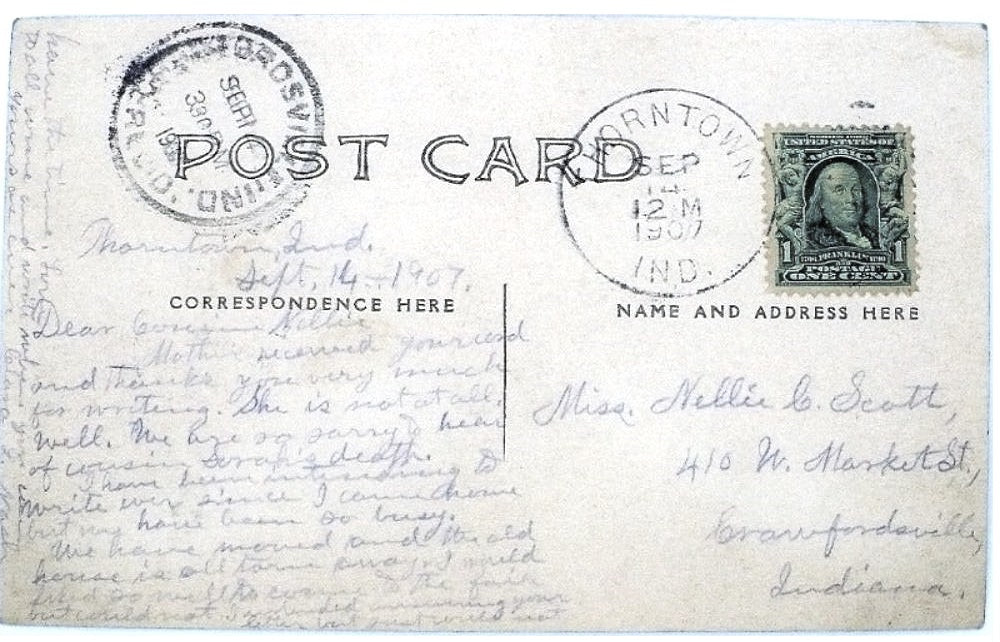 POST CARD
CORRESPONDENCE HERE
NAME AND ADDRESS HERE
THORNTOWN
SEP
14
12 M
1907
IND.
UNITED STATES OF
AMERICA
1 FRANKLIN 1
POSTAGE
ONE CENT
SEP
330 PM
IND.
Thorntown, Ind.
Sept. 14 - 1907.
Dear Cousin Nellie
Mother received your card
and thanks you very much
for writing. She is not at all
well. We are so sorry to hear
of cousin Sarah's death.
I have been intending to
write ever since I came home
but we have been so busy.
We have moved and the old
house is all torn away. I would
liked so well to come to the fair
but could not. I intended answering your
letter but just would not
have the time.
Miss. Nellie C. Scott,
410 W. Market St.,
Crawfordsville,
Indiana.